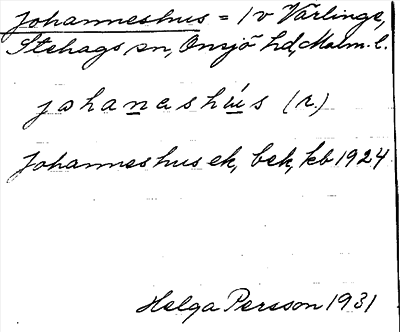 Johanneshus = 1 v Värlinge,
Stehags sn, Onsjö hd, Malm. l.
johaneshús (r.)
Johanneshus ek, bek, kb 1924
Helga Persson 1931